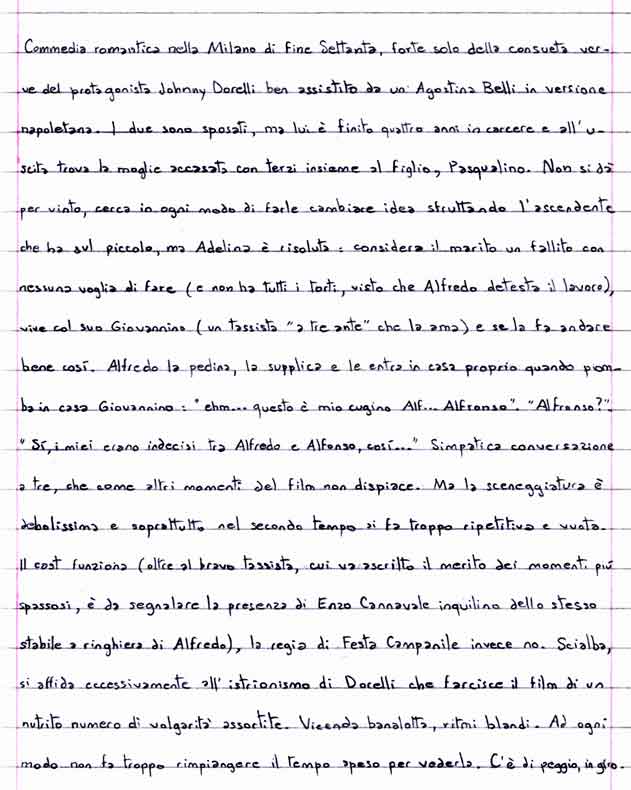 Commedia romantica nella Milano di fine Settanta, forte solo della consueta ver-
ve del protagonista Johnny Dorelli ben assistito da un' Agostina Belli in versione
napoletana. I due sono sposati, ma lui è finito quattro anni in carcere e all'u-
scita trova la moglie accasata con terzi insieme al figlio, Pasqualino. Non si dà
per vinto, cerca in ogni modo di farle cambiare idea sfruttando l'ascendente
che ha sul piccolo, ma Adelina è risoluta: considera il marito un fallito con
nessuna voglia di fare (e non ha tutti i torti, visto che Alfredo detesta il lavoro),
vive col suo Giovannino (un tassista "a tre ante" che la ama) e se la fa andare
bene così. Alfredo la pedina, la supplica e le entra in casa proprio quando piom-
ba in casa Giovannino: "ehm... questo è mio cugino Alf... Alfronso". "Alfronso?".
"Sì, i miei erano indecisi tra Alfredo e Alfonso, così..." Simpatica conversazione
a tre, che come altri momenti del film non dispiace. Ma la sceneggiatura è
debolissima e soprattutto nel secondo tempo si fa troppo ripetitiva e vuota.
Il cast funziona (oltre al bravo tassista, cui va ascritto il merito dei momenti più
spassosi, è da segnalare la presenza di Enzo Cannavale inquilino dello stesso
stabile a ringhiera di Alfredo), la regia di Festa Campanile invece no. Scialba,
si affida eccessivamente all'istrionismo di Dorelli che farcisce il film di un
nutrito numero di volgarità assortite. Vicenda banalotta, ritmi blandi. Ad ogni
modo non fa troppo rimpiangere il tempo speso per vederla. C'è di peggio, in giro.